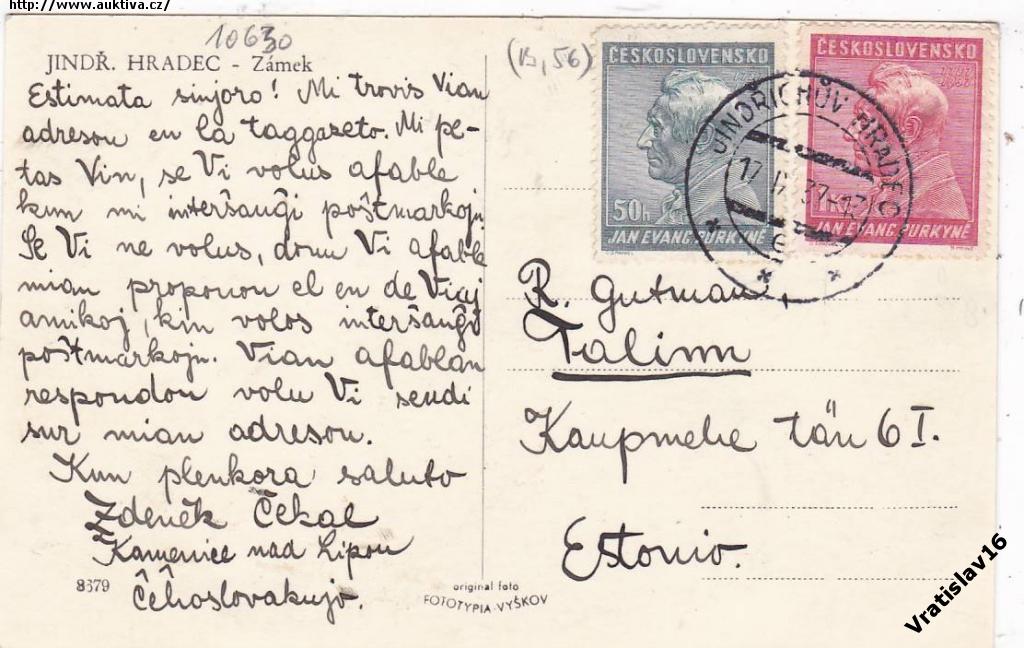 http://www.auktiva.cz/
10630
(B, 56)
JINDŘ. HRADEC - Zámek
Estimata sinjoro! Mi trovis Vian
adreson en la taggazeto. Mi pe-
tas Vin, se Vi volus afable
kun mi interŝanĝi poŝtmarkojn.
Se Vi ne volus, donu Vi afable
mian proponon el en de Viaj
amikoj, kiu volos interŝanĝi
poŝtmarkojn. Vian afablan
respondon volu Vi sendi
sur mian adreson.
Kun plenkora saluto
Zdeněk Čekal
Kamenice nad Lipou
Ĉeĥoslovakujo.
8379
original foto
FOTOTYPIA-VYŠKOV
ČESKOSLOVENSKO
1787
50h
JAN EVANG. PURKYNĚ
ČESKOSLOVENSKO
1787
JAN EVANG. PURKYNĚ
JINDŘICHŮV HRADEC
R. Gutman
Talinn
Kaupmehe tän 6 I.
Estonio.
Vratislav16